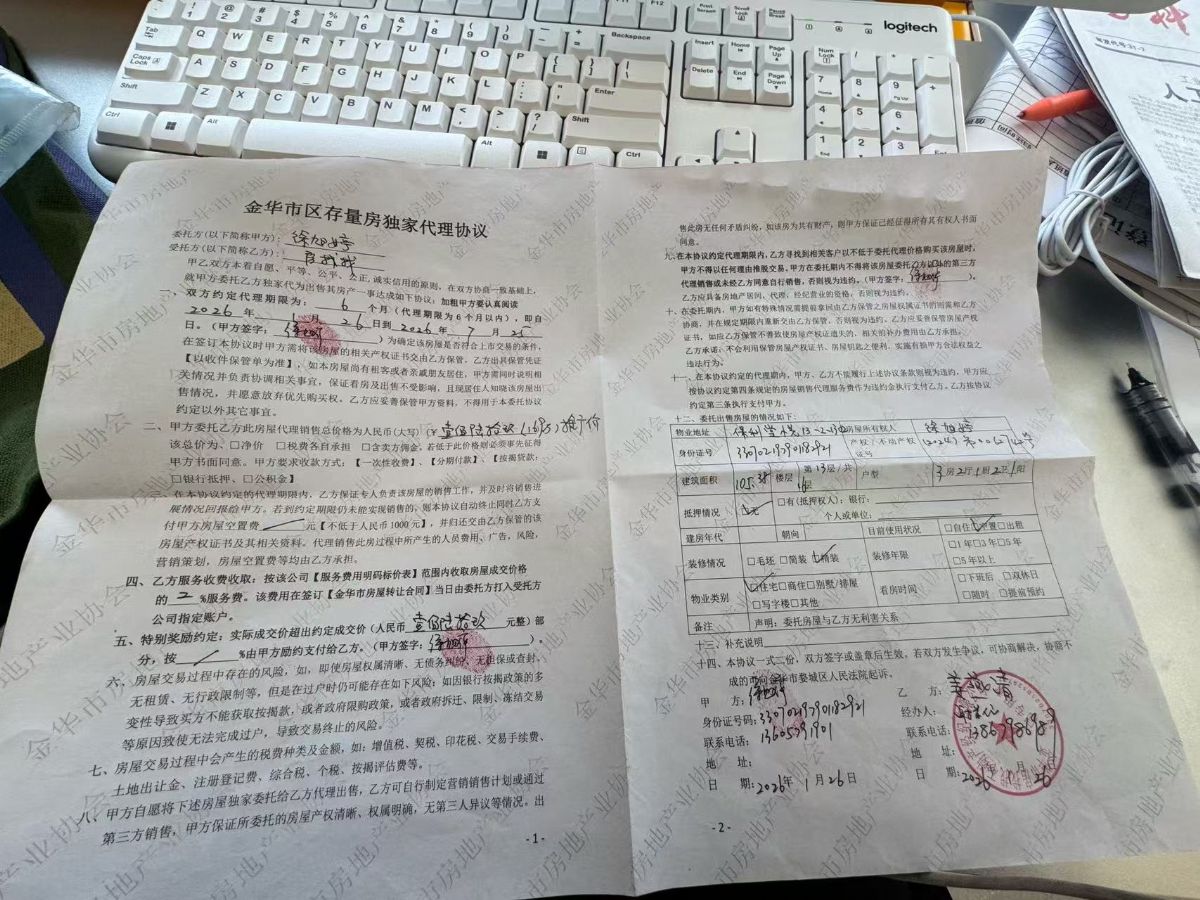 logitech
金华市区存量房独家代理协议
委托方(以下简称甲方):
受托方(以下简称乙方):
甲乙双方本着自愿、平等、公平、公正,诚实信用的原则,在双方协商一致基础上,
就甲方委托乙方独家代为出售其房产一事达成如下协议:加粗甲方要认真阅读
一、双方约定代理期限为: 6 个月(代理期限为6个月以内),即自
2026 年 1 月 26 日到 2026 年 7 月 25
日。(甲方签字: )为确定该房屋是否符合上市交易的条件,
在签订本协议时甲方需将该房屋的相关产权证书交由乙方保管,乙方出具保管凭证
【以收件保管单为准】,如本房屋尚有租客或者亲戚朋友居住,甲方需同时说明相
关情况并负责协调相关事宜,保证看房及出售不受影响,且现居住人知晓该房屋出
售情况,并愿意放弃优先购买权。乙方应妥善保管甲方资料,不得用于本委托协议
约定以外其它事宜。
二、甲方委托乙方此房屋代理销售总价格为人民币(大写)(¥ 壹佰陆拾玖(169万)推广价
该总价为、□净价 □税费各自承担 □含卖方佣金。若低于此价格则必须事先征得
甲方书面同意。甲方要求收款方式:【一次性收费】、【分期付款】、【按揭贷款:
□银行抵押、□公积金】
三、在本协议约定的代理期限内,乙方保证专人负责该房屋的销售工作,并及时将销售进
展情况回报给甲方。若到约定期限仍未能实现销售的,则本协议自动终止同时乙方支
付甲方房屋空置费 元【不低于人民币1000元】,并归还交由乙方保管的该
房屋产权证书及其相关资料。代理销售此房过程中所产生的人员费用、广告,风险,
营销策划,房屋空置费等均由乙方承担。
四、乙方服务收费收取:按该公司【服务费用明码标价表】范围内收取房屋成交价格
的 2 %服务费。该费用在签订【金华市房屋转让合同】当日由委托方打入受托方
公司指定账户。
五、特别奖励约定:实际成交价超出约定成交价(人民币 壹佰陆拾玖 元整)部
分,按 %由甲方励约支付给乙方。(甲方签字: )。
六、房屋交易过程中存在的风险,如:即使房屋权属清晰、无债务纠纷、无担保或查封、
无租赁、无行政限制等,但是在过户时仍可能存在如下风险:如因银行按揭政策的多
变性导致买方不能获取按揭款,或者政府限购政策,或者政府拆迁、限制、冻结交易
等原因致使无法完成过户,导致交易终止的风险。
七、房屋交易过程中会产生的税费种类及金额,如:增值税、契税、印花税、交易手续费、
土地出让金、注册登记费、综合税、个税、按揭评估费等。
八、甲方自愿将下述房屋独家委托给乙方代理出售,乙方可自行制定营销销售计划或通过
第三方销售,甲方保证所委托的房屋产权清晰、权属明确,无第三人异议等情况。出
-1-
售此房无任何矛盾纠纷,如该房为共有财产,则甲方保证已经征得所有其有权人书面
同意。
九、在本协议约定代理期限内,乙方寻找到相关客户以不低于委托代理价格购买该房屋时,
甲方不得以任何理由推脱交易,甲方在委托期内不得将该房屋委托乙方以外的第三方
代理销售或未经乙方同意自行销售,否则视为违约。(甲方签字: )。
乙方应具备房地产居间、代理、经纪营业的资格,否则视为违约。
十、在委托期内,甲方如有特殊情况需提前拿回由乙方保管之房屋权属证书的则需和乙方
协商,并在规定期限内重新交由乙方保管,否则视为违约。乙方应妥善保管房屋产权
证书,如应乙方保管不善致使房屋产权证遗失的,相关的补办费用由乙方承担。
乙方承诺:不会利用保管房屋产权证书、房屋钥匙之便利,实施有损甲方合法权益之
违法行为。
十一、在本协议约定的代理期内,甲方、乙方不能履行上述协议条款则视为违约,甲方应
按协议约定第四条规定的房屋销售代理服务费作为违约金执行支付乙方。乙方按协议
约定第三条执行支付甲方。
十二、委托出售房屋的情况如下:
物业地址 房屋所有权人
身份证号 330702197901182921 产权/不动产权证号
建筑面积 105.38 楼层 第13层/共 层 户型 3房2厅1厨2卫1阳
抵押情况 □无 □有(抵押权人):银行:
个人或单位:
建房年代 朝向 目前使用状况 □自住□空置□出租
装修情况 □毛坯 □简装 □精装 装修年限 □1年□3年□5年
□5年以上
物业类别 □住宅□商住□别墅/排屋 看房时间 □下班后 □双休日
□写字楼□其他 □随时 □提前预约
备注 声明:委托房屋与乙方无利害关系
十三、补充说明
十四、本协议一式二份,双方签字或盖章后生效,若双方发生争议,可协商解决,协商不
成的可向金华市婺城区人民法院起诉。
甲 方: 乙 方:
身份证号码:330702197901182921 经办人:
联系电话:13605791901 联系电话:13867986989
地 址: 地 址:
日 期:2026年1月26日 日 期:2026年1月26
-2-